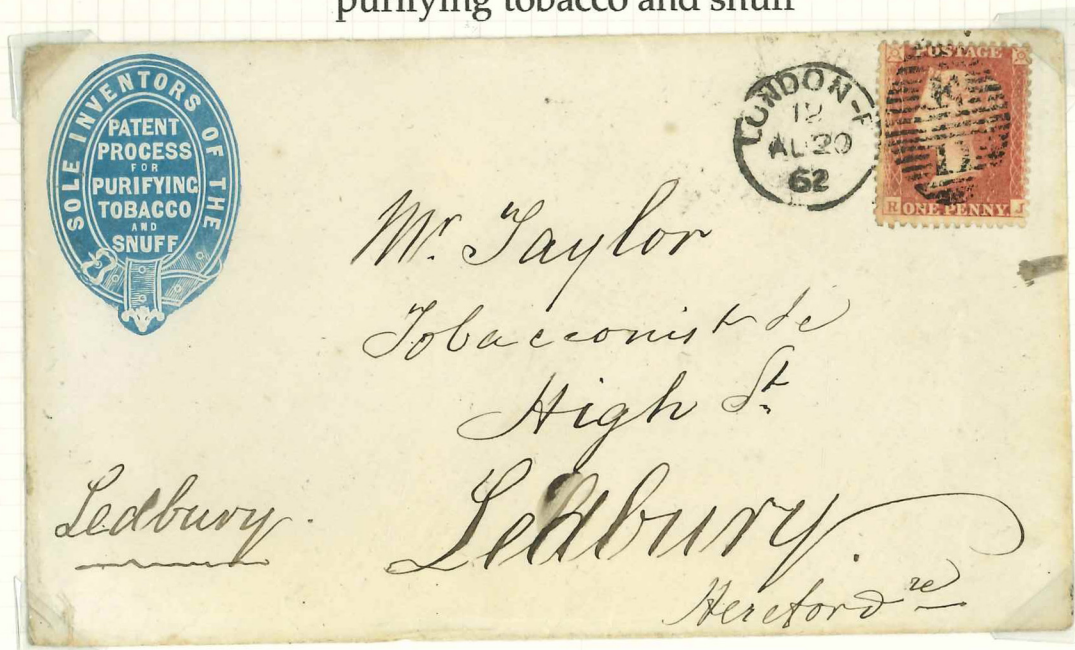 purifying tobacco and snuff
SOLE INVENTORS OF THE
PATENT
PROCESS
FOR
PURIFYING
TOBACCO
AND
SNUFF
LONDON-
12
AU 20
62
POSTAGE
R ONE PENNY. J
Mr. Taylor
Tobacconist &c
High St.
Ledbury.
Herefordre
Ledbury.